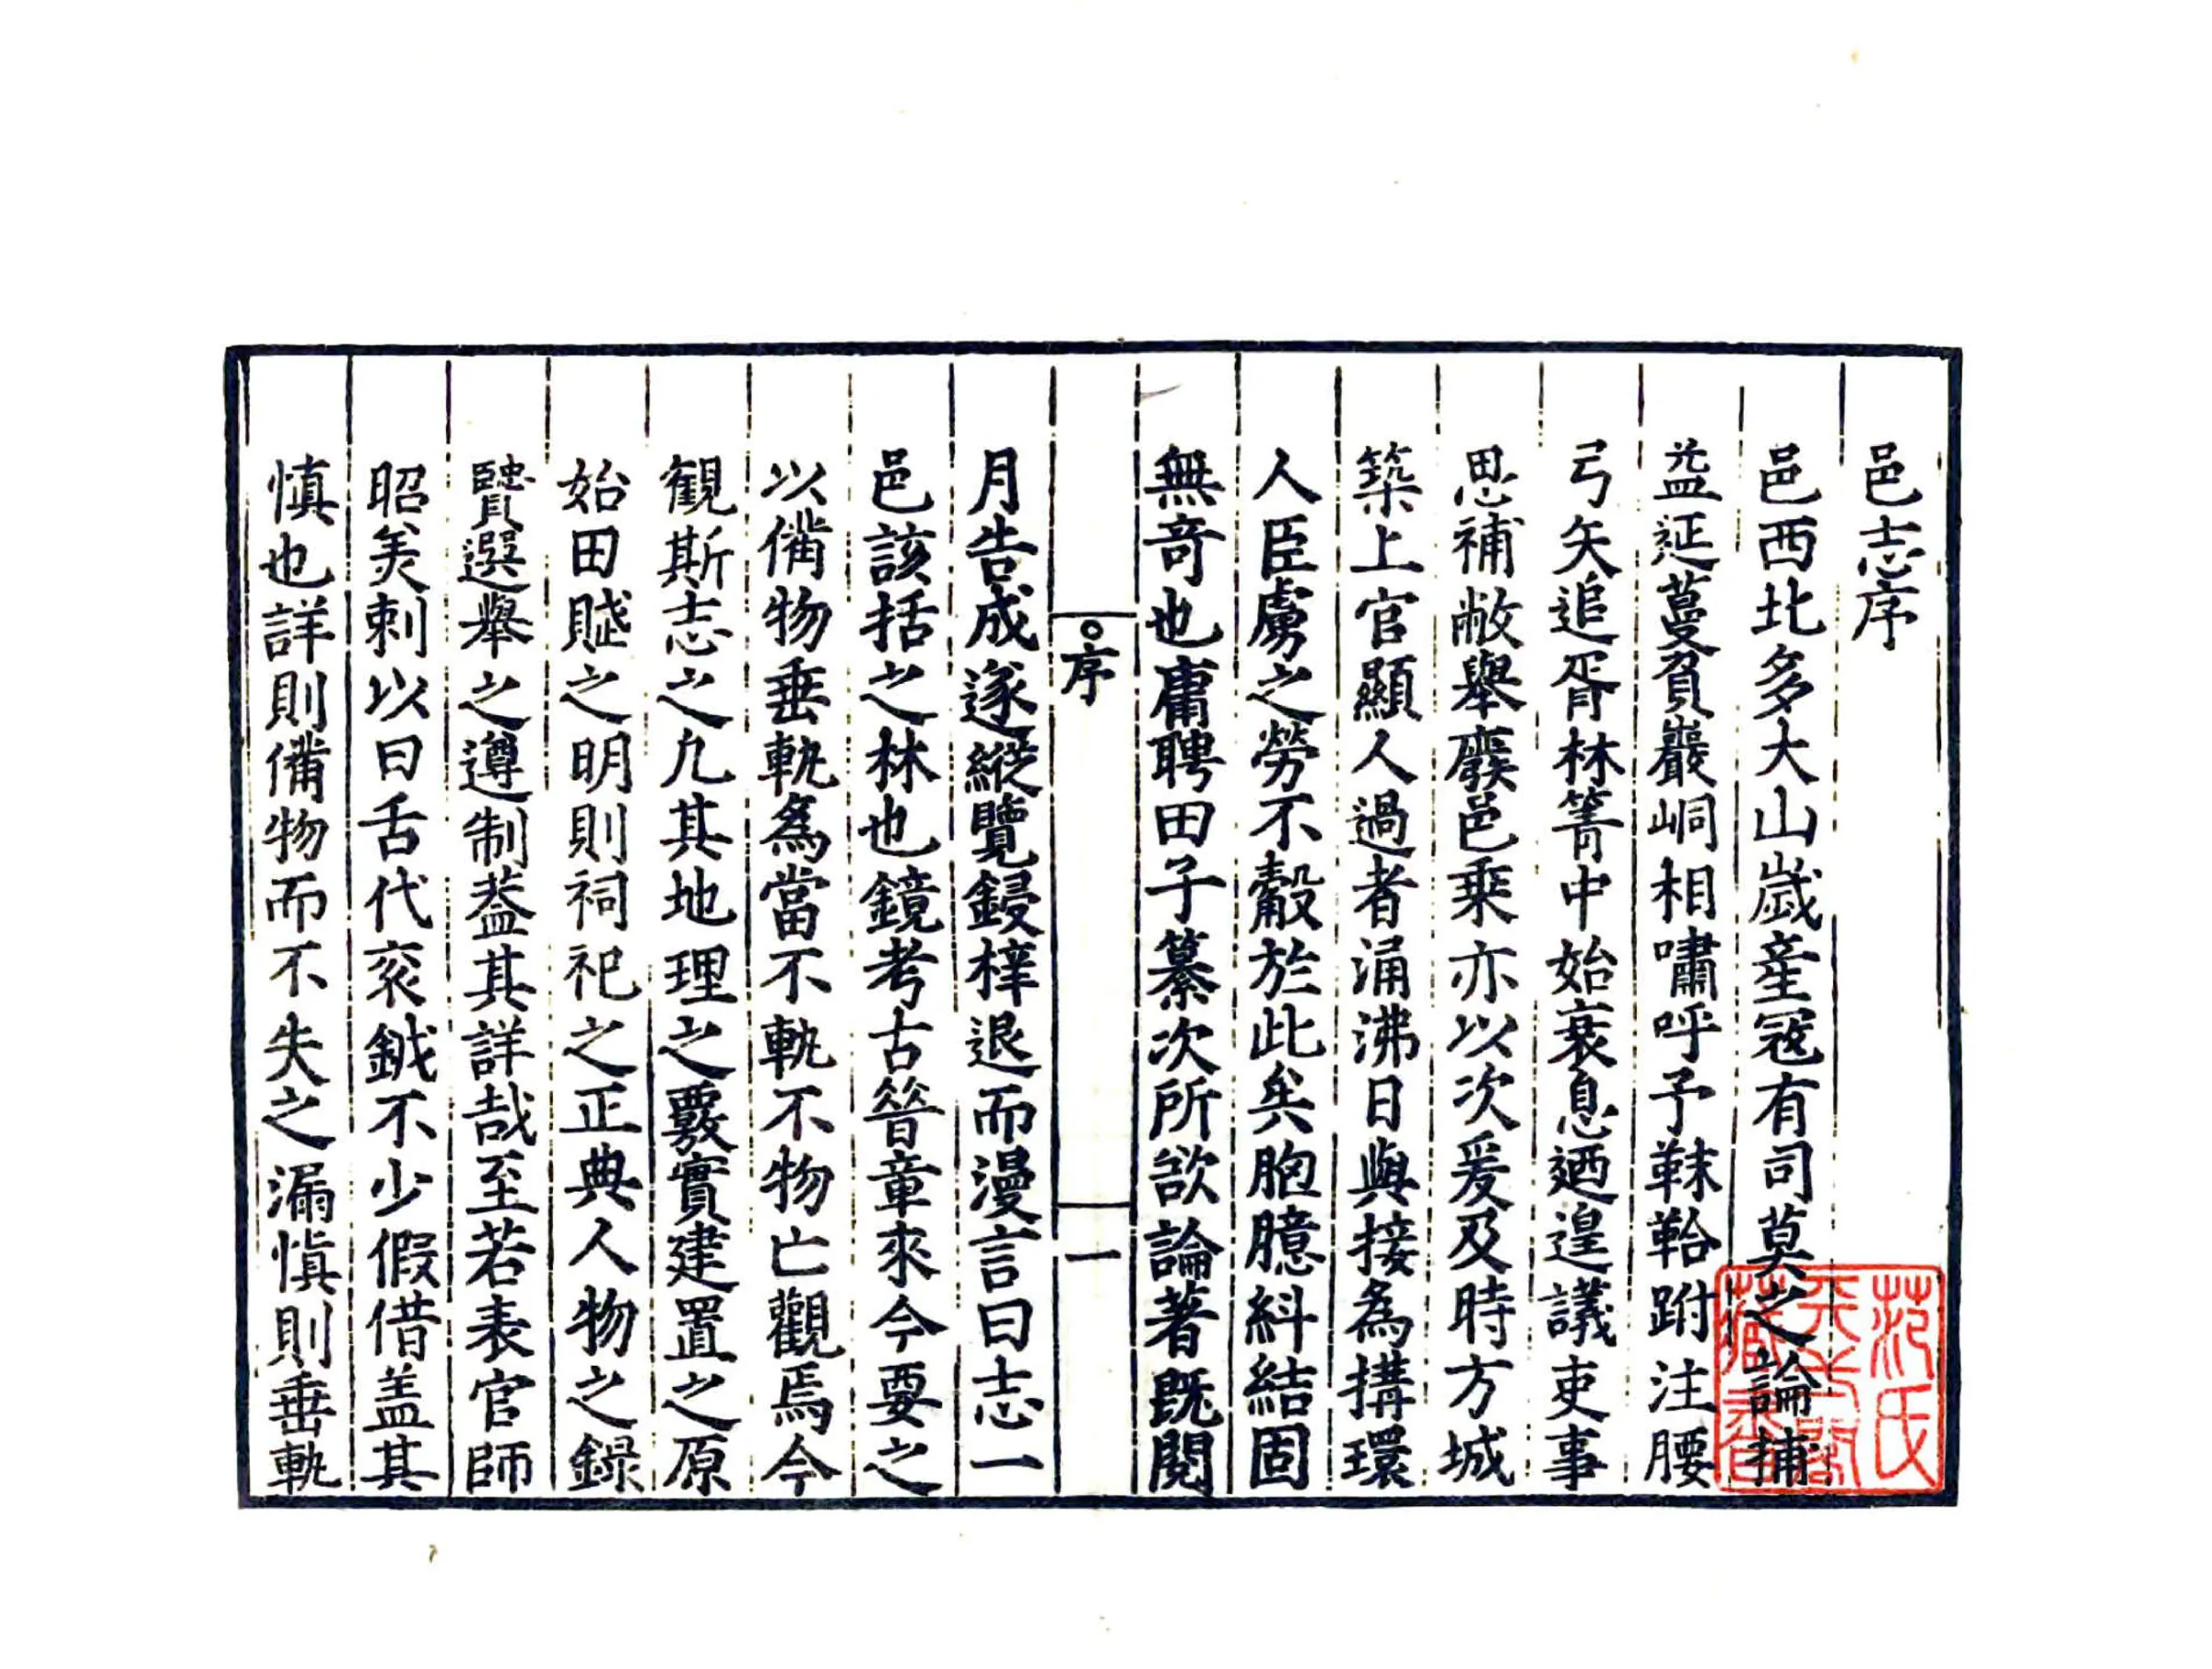 邑志序
邑西北多大山歲產冦有司莫之論捕
益延蔓負巖峒相嘯呼予靺鞈跗注腰
弓矢追胥林箐中始衰息廼遑議吏事
思補敝舉廢邑乘亦以次爰及時方城
築上官顯人過者涌沸日與接為搆環
人臣虜之勞不觳於此矣胞臆糾結固
無奇也庸聘田子纂次所欲論著既閱
序
一
月告成遂縱覽鋟梓退而漫言曰志一
邑該括之林也鏡考古昔章來今要之
以備物垂軌爲當不軌不物亡觀焉今
觀斯志之凡其地理之覈實建置之原
始田賦之明則祠祀之正典人物之録
賢選舉之遵制葢其詳哉至若表官師
昭美刺以曰舌代衮鉞不少假借盖其
慎也詳則備物而不失之漏慎則垂軌
范氏
天一閣
藏書